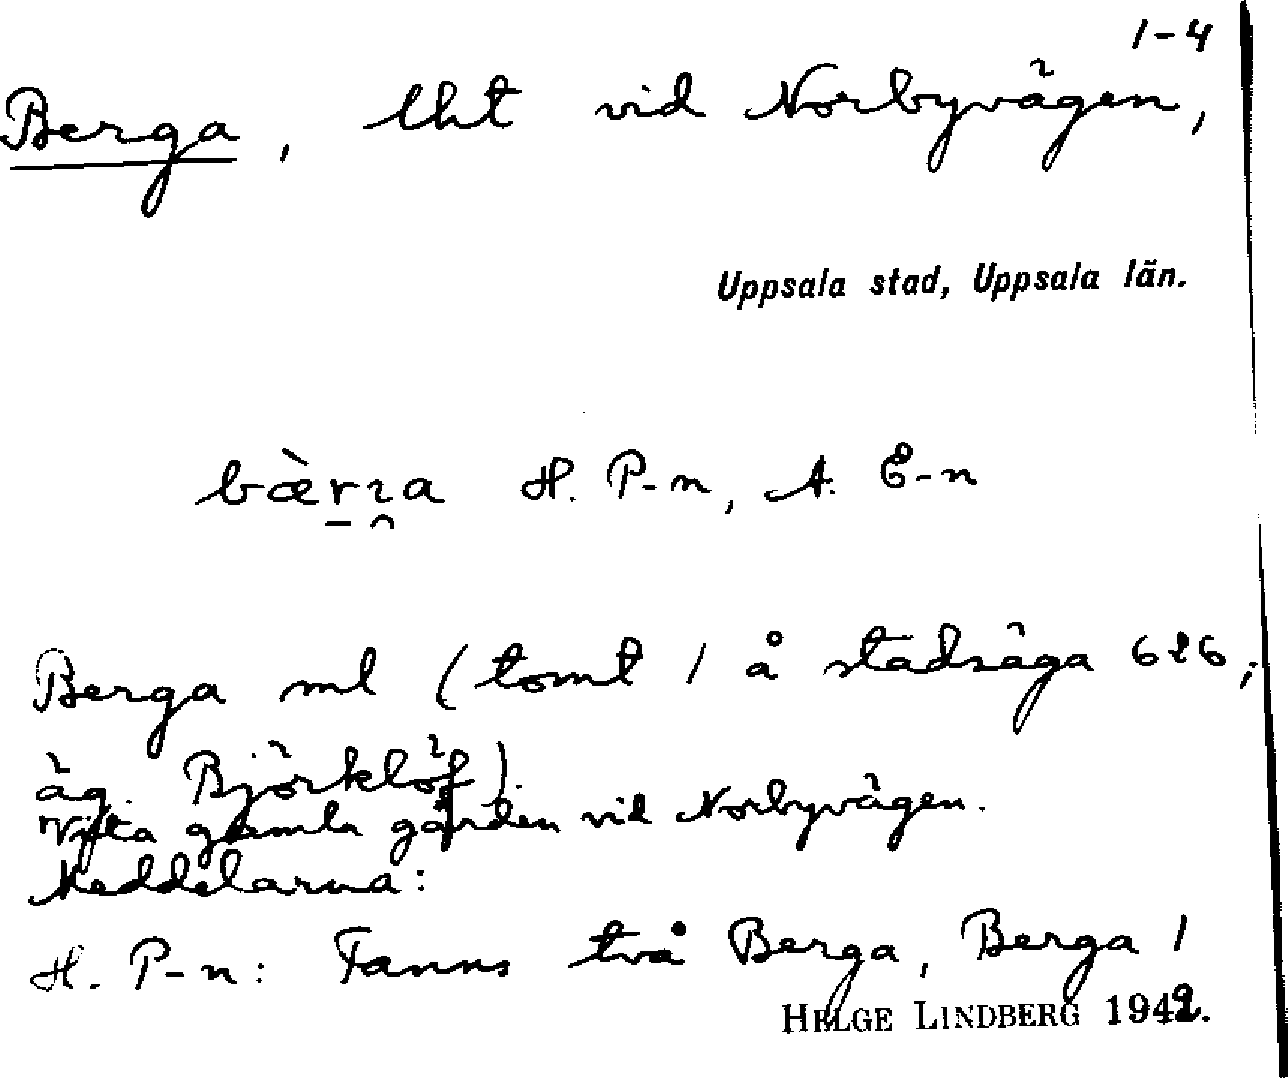 1-4
Berga, lht vid Norbyvägen,
Uppsala stad, Uppsala län.
bæ̀rɿa H. P-n, A. E-n
Berga ml (tomt 1 å stadsäga 626;
äg. Björklöf).
gamla gården vid Norbyvägen.
Meddelarna:
H. P-n: Fanns två Berga, Berga 1
HELGE LINDBERG 1942.